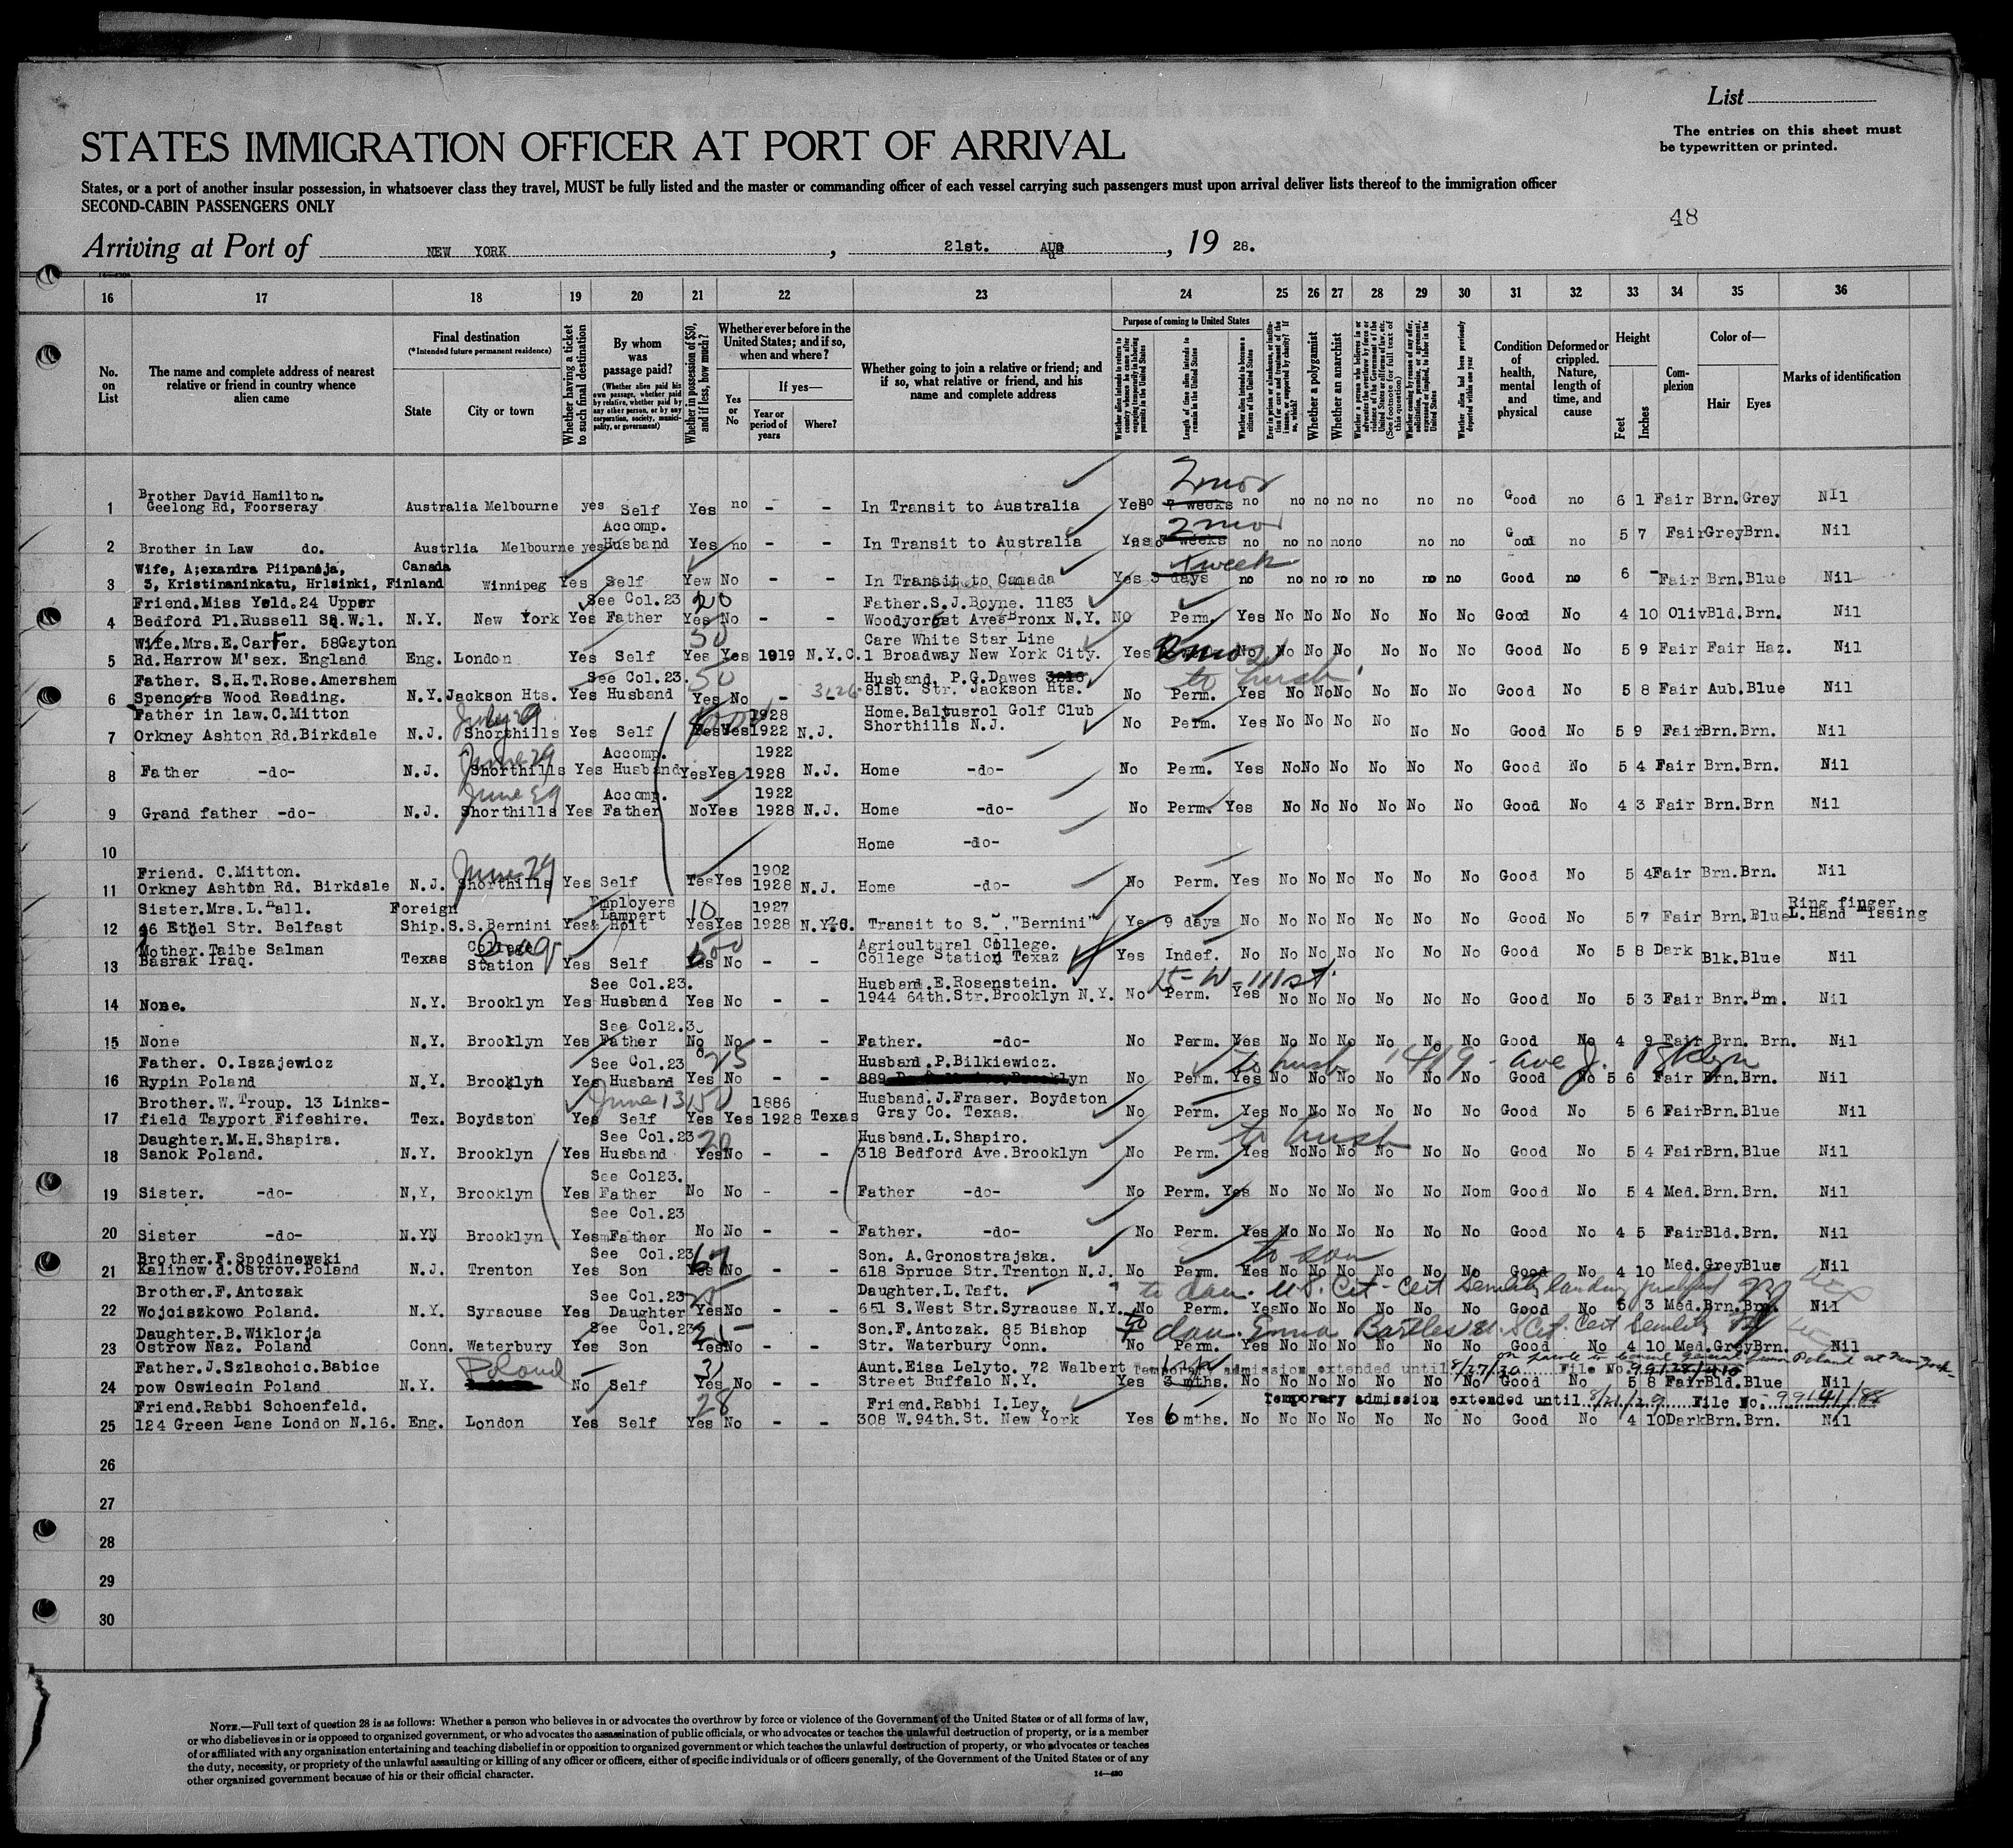 List
The entries on this sheet must
be typewritten or printed.
STATES IMMIGRATION OFFICER AT PORT OF ARRIVAL
States, or a port of another insular possession, in whatsoever class they travel, MUST be fully listed and the master or commanding officer of each vessel carrying such passengers must upon arrival deliver lists thereof to the immigration officer
SECOND-CABIN PASSENGERS ONLY
48
Arriving at Port of NEW YORK, 21st. AUG, 19 28.
16 17 18 19 20 21 22 23 24 25 26 27 28 29 30 31 32 33 34 35 36
No. on List
The name and complete address of nearest relative or friend in country whence alien came
Final destination
(*Intended future permanent residence)
State
City or town
Whether having a ticket to such final destination
By whom was passage paid?
(Whether alien paid his own passage, whether paid by relative, whether paid by any other person, or by any corporation, society, municipality, or government)
Whether in possession of $50, and if less, how much?
Whether ever before in the United States; and if so, when and where?
Yes or No
If yes—
Year or period of years
Where?
Whether going to join a relative or friend; and if so, what relative or friend, and his name and complete address
Purpose of coming to United States
Length of time alien intends to remain in the United States
Whether alien intends to become a citizen of the United States
Whether a polygamist
Whether an anarchist
Whether alien had been previously deported within one year
Condition of health, mental and physical
Deformed or crippled. Nature, length of time, and cause
Height
Feet
Inches
Complexion
Color of—
Hair
Eyes
Marks of identification
Brother David Hamilton.
1 Geelong Rd, Foorseray Australia Melbourne yes Self Yes no - - In Transit to Australia Yes no 7 weeks 2 mos no no no no no no no Good no 6 1 Fair Brn. Grey Nil
Accomp.
2 Brother in Law do. Austrlia Melbourne yes Husband Yes no - - In Transit to Australia Yes weeks 2 mos no no no no no no no Good no 5 7 Fair Grey Brn. Nil
Wife, A;exandra Piipanaja, Canada
3 3, Kristinaninkatu, Hrlsinki, Finland Winnipeg Yes Self Yew No - - In Transit to Canada Yes 3 days 1 week no no no no no no no Good no 6 - Fair Brn. Blue Nil
Friend. Miss Yeld. 24 Upper See Col. 23 20 Father. S. J. Boyne. 1183
4 Bedford Pl. Russell Sq. W.1. N.Y. New York Yes Father Yes No - - Woodycrest Ave Bronx N.Y. NO Perm. Yes No No No No No No Good No 4 10 Oliv Bld. Brn. Nil
Wife. Mrs. E. Carter. 58 Gayton 50 Care White Star Line
5 Rd. Harrow M'sex. England Eng. London Yes Self Yes Yes 1919 N.Y.C. 1 Broadway New York City. Yes 2 mos No No No No No No No Good No 5 9 Fair Fair Haz. Nil
Father. S.H.T. Rose. Amersham See Col. 23. 50 Husband P.G. Dawes to husb
6 Spencers Wood Reading. N.Y. Jackson Hts. Yes Husband Yes No - - 3126 81st. Str. Jackson Hts. No Perm. Yes No No No No No No Good No 5 8 Fair Aub. Blue Nil
Father in law. C. Mitton July 29 1928 Home. Baltusrol Golf Club
7 Orkney Ashton Rd. Birkdale N.J. Shorthills Yes Self Yes Yes 1922 N.J. Shorthills N.J. No Perm. Yes No No No No No No Good No 5 9 Fair Brn. Brn. Nil
June 29 Accomp. 1922
8 Father -do- N.J. Shorthills Yes Husband Yes Yes 1928 N.J. Home -do- No Perm. Yes No No No No No No Good No 5 4 Fair Brn. Brn. Nil
June 29 Accomp. 1922
9 Grand father -do- N.J. Shorthills Yes Father No Yes 1928 N.J. Home -do- No Perm. Yes No No No No No No Good No 4 3 Fair Brn. Brn Nil
10 Home -do-
Friend. C. Mitton. June 29 1902
11 Orkney Ashton Rd. Birkdale N.J. Shorthills Yes Self Yes Yes 1928 N.J. Home -do- No Perm. Yes No No No No No No Good No 5 4 Fair Brn. Brn. Nil
Sister. Mrs. L. Hall. Foreign Employers Lampert 10 1927 Ring finger
12 46 Ethel Str. Belfast Ship. S.S. Bernini Yes & Holt Yes Yes 1928 N.Y.C. Transit to S. "Bernini" Yes 9 days No No No No No No No Good No 5 7 Fair Brn. Blue L. Hand Missing
Mother. Taibe Salman College 500 Agricultural College.
13 Basrak Iraq. Texas Station Yes Self Yes No - - College Station Texaz Yes Indef. No No No No No No No Good No 5 8 Dark Blk. Blue Nil
See Col. 23. Husband. E. Rosenstein. 15 - W - 111 st.
14 None. N.Y. Brooklyn Yes Husband Yes No - - 1944 64th. Str. Brooklyn N.Y. No Perm. Yes No No No No No No Good No 5 3 Fair Bnr. Bm. Nil
See Col2.3.
15 None N.Y. Brooklyn Yes Father No No - - Father. -do- No Perm. Yes No No No No No No Good No 4 9 Fair Brn. Brn. Nil
Father. O. Iszajewicz See Col. 23 25 Husband. P. Bilkiewicz. to husb 1419 - Ave J. Bklyn
16 Rypin Poland N.Y. Brooklyn Yes Husband Yes No - - 889 No Perm. Yes No No No No No No Good No 5 6 Fair Brn. Brn. Nil
Brother. W. Troup. 13 Links- June 13 150 1886 Husband. J. Fraser. Boydston
17 field Tayport Fifeshire. Tex. Boydston Yes Self Yes Yes 1928 Texas Gray Co. Texas. No Perm. Yes No No No No No No Good No 5 6 Fair Brn. Blue Nil
Daughter. M.H. Shapira. See Col. 23 20 Husband. L. Shapiro. to husb
18 Sanok Poland. N.Y. Brooklyn Yes Husband Yes No - - 318 Bedford Ave. Brooklyn No Perm. Yes No No No No No No Good No 5 4 Fair Brn. Blue Nil
See Col23.
19 Sister. -do- N,Y, Brooklyn Yes Father No No - - Father -do- No Perm. Yes No No No No No Nom Good No 5 4 Med. Brn. Brn. Nil
See Col. 23
20 Sister -do- N.YN Brooklyn Yesm Father No No - - Father. -do- No Perm. Yes No No No No No No Good No 4 5 Fair Bld. Brn. Nil
Brother. F. Spodinewski See Col. 23 67 Son. A. Gronostrajska. to son
21 Kalinow d. Ostrov. Poland N.J. Trenton Yes Son Yes No - - 618 Spruce Str. Trenton N.J. No Perm. Yes No No No No No No Good No 4 10 Med. Grey Blue Nil
Brother. F. Antozak See Col. 23 Daughter. L. Taft. to dau. U.S. Cit - Cert
22 Wojciszkowo Poland. N.Y. Syracuse Yes Daughter Yes No - - 651 S. West Str. Syracuse N.Y. No Perm. Yes No No No No No No Good No 5 3 Med. Brn. Brn. Nil
Daughter. B. Wiklorja See Col. 23 25 Son. F. Antozak. 85 Bishop to dau. Emma Bartles U.S. Cit. Cert
23 Ostrow Naz. Poland Conn. Waterbury Yes Son Yes No - - Str. Waterbury Conn. No Perm. Yes No No No No No No Good No 4 10 Med. Grey Brn. Nil
Father. J. Szlachcic. Babice Poland Aunt. Eisa Lelyto. 72 Walbert Temporary admission extended until 8/27/30 File No.
24 pow Oswiecin Poland N.Y. No Self Yes No - - Street Buffalo N.Y. Yes 3 mths. No No No No No No No Good No 5 8 Fair Bld. Blue Nil
Friend. Rabbi Schoenfeld. 28 Friend. Rabbi I. Ley. Temporary admission extended until 8/21/29 File No. 99141/88
25 124 Green Lane London N.16. Eng. London Yes Self Yes No - - 308 W. 94th. St. New York Yes 6 mths. No No No No No No No Good No 4 10 Dark Brn. Brn. Nil
26
27
28
29
30
NOTE.—Full text of question 28 is as follows: Whether a person who believes in or advocates the overthrow by force or violence of the Government of the United States or of all forms of law,
or who disbelieves in or is opposed to organized government, or who advocates the assassination of public officials, or who advocates or teaches the unlawful destruction of property, or is a member
of or affiliated with any organization entertaining and teaching disbelief in or opposition to organized government or which teaches the unlawful destruction of property, or who advocates or teaches
the duty, necessity, or propriety of the unlawful assaulting or killing of any officer or officers, either of specific individuals or of officers generally, of the Government of the United States or of any
other organized government because of his or their official character.
14—480